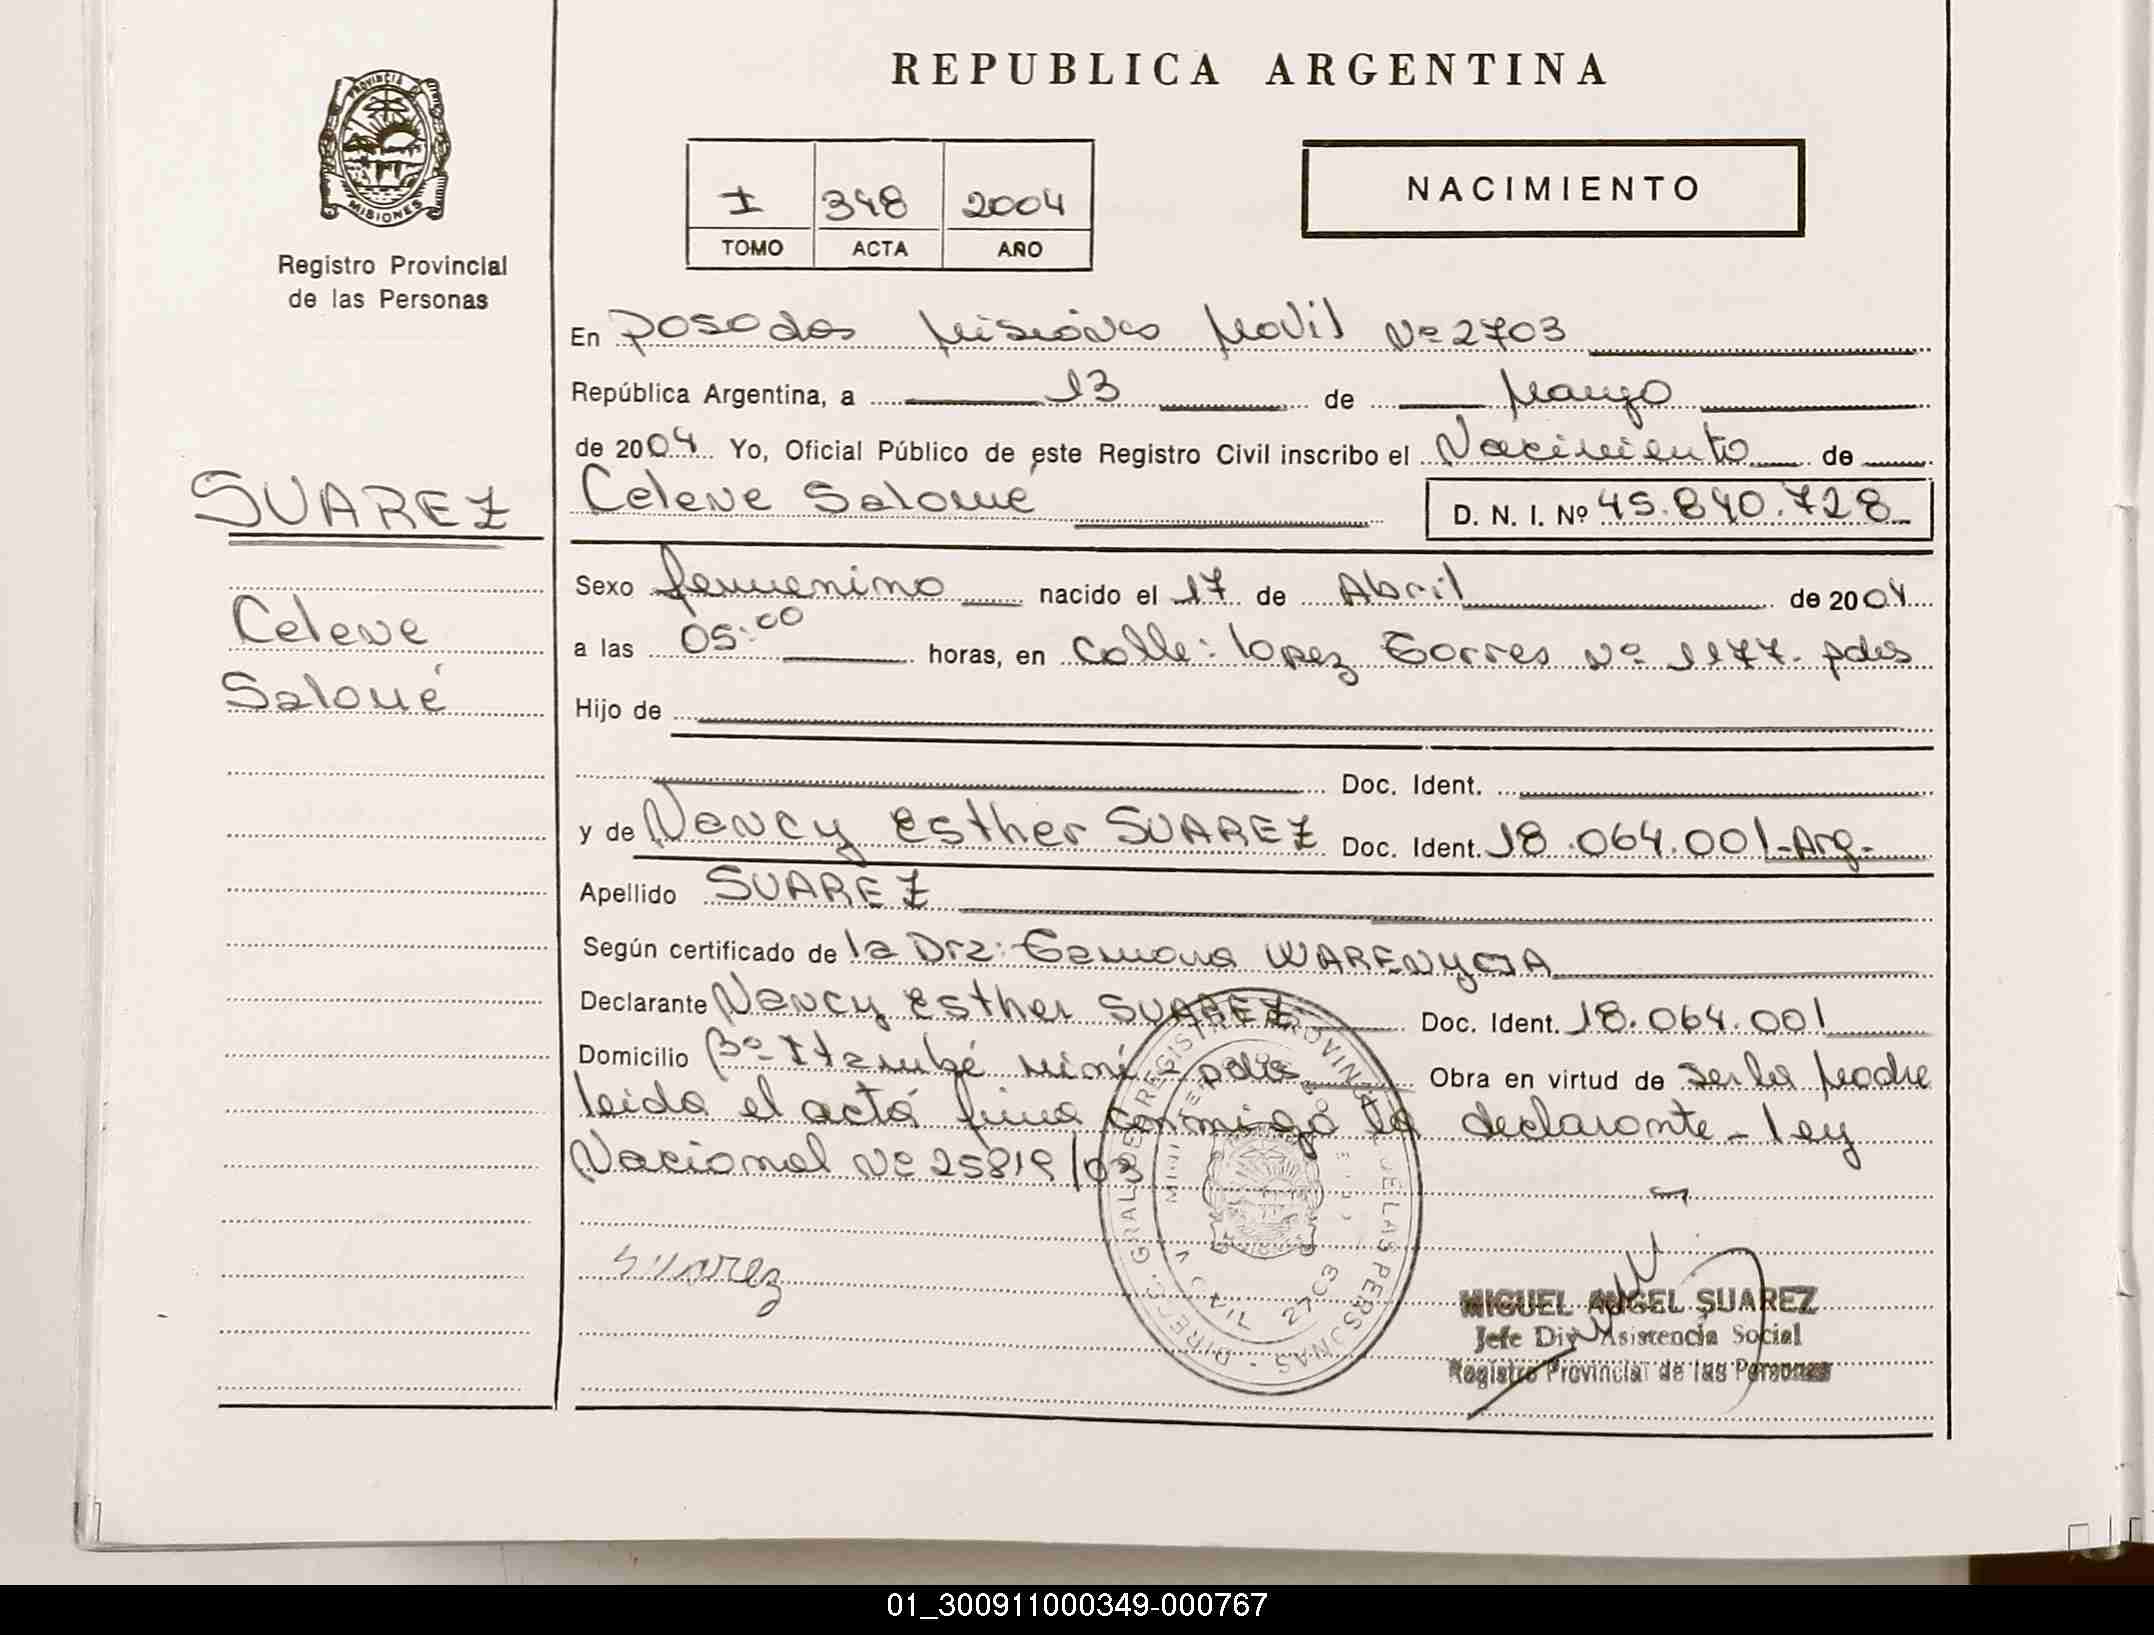 REPUBLICA ARGENTINA
PROVINCIA DE
MISIONES
Registro Provincial
de las Personas
I 348 2004
TOMO ACTA AÑO
NACIMIENTO
En Posadas Misiones Movil Nº 2703
República Argentina, a 13 de Marzo
de 2004 Yo, Oficial Público de este Registro Civil inscribo el Nacimiento de
SUAREZ
Celene Salomé D. N. I. Nº 45.840.728
Sexo femenino nacido el 17 de Abril de 2004
Celene
a las 05:00 horas, en Calle: lopez Torres Nº 1177. pdas
Salomé
Hijo de
Doc. Ident.
y de Nancy Esther SUAREZ Doc. Ident. 18.064.001-Arg-
Apellido SUAREZ
Según certificado de la Dra: Gamona WARENYCIA
Declarante Nancy Esther SUAREZ Doc. Ident. 18.064.001
Domicilio Bº Itaembé miní - pdas Obra en virtud de ser la Madre
leida el acta firma conmigo la declarante - ley
Nacional Nº 25819/03
Suarez
DIREC. GRAL. DE REGISTRO PROVINCIAL DE LAS PERSONAS
MOVIL 2703
MIGUEL ANGEL SUAREZ
Jefe Div Asistencia Social
Registro Provincial de las Personas
01_300911000349-000767